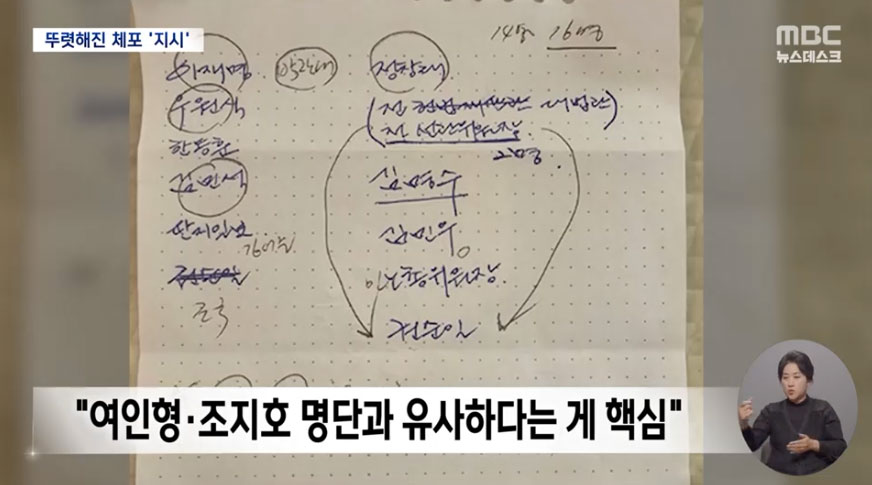 뚜렷해진 체포 '지시'
MBC
뉴스데스크
14명 16명
이재명 박찬대 정청래
우원식
(전 대법관)
전 선관위원장
2명
한동훈
김민석 김명수
딴지일보
김어준
김민웅
노총위원장
조국
권순일
"여인형·조지호 명단과 유사하다는 게 핵심"